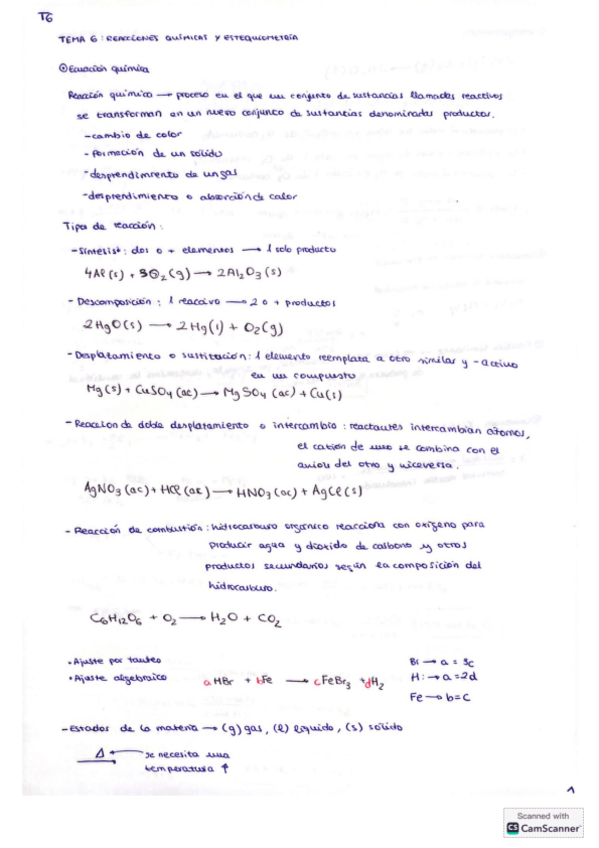 T6
TEMA 6: REACCIONES QUÍMICAS Y ESTEQUIOMETRÍA
⊙Ecuación química
Reacción química → proceso en el que un conjunto de sustancias llamadas reactivos
se transforman en un nuevo conjunto de sustancias denominadas productos.
-cambio de color
-formación de un sólido
-desprendimiento de un gas
-desprendimiento o absorción de calor
Tipos de reacción:
-Síntesis: dos o + elementos → 1 solo producto
4Al(s) + 3O₂(g) → 2Al₂O₃(s)
- Descomposición: 1 reactivo → 2 o + productos
2HgO(s) → 2Hg(l) + O₂(g)
-Desplatamiento o sustitución: 1 elemento reemplaza a otro similar y -activo
en un compuesto
Mg(s) + CuSO₄(ac) → MgSO₄(ac) + Cu(s)
-Reaccion de doble desplatamiento o intercambio: reactantes intercambian átomos,
el catión de uno se combina con el
anion del otro y viceversa.
AgNO₃(ac) + HCl(ac) → HNO₃(ac) + AgCl(s)
-Reacción de combustión: hidrocarburo orgánico reacciona con oxígeno para
producir agua y dioxido de carbono y otros
productos secundarios según la composicion del
hidrocarburo.
C₆H₁₂O₆ + O₂ → H₂O + CO₂
•Ajuste por tanteo
•Ajuste algebraico
aHBr + bFe → cFeBr₃ + dH₂
Br → a = 3c
H: → a = 2d
Fe → b = c
-Estados de la materia → (g) gas, (l) líquido, (s) sólido
Δ ← se necesita una
temperatura ↑
1
Scanned with
CS CamScanner